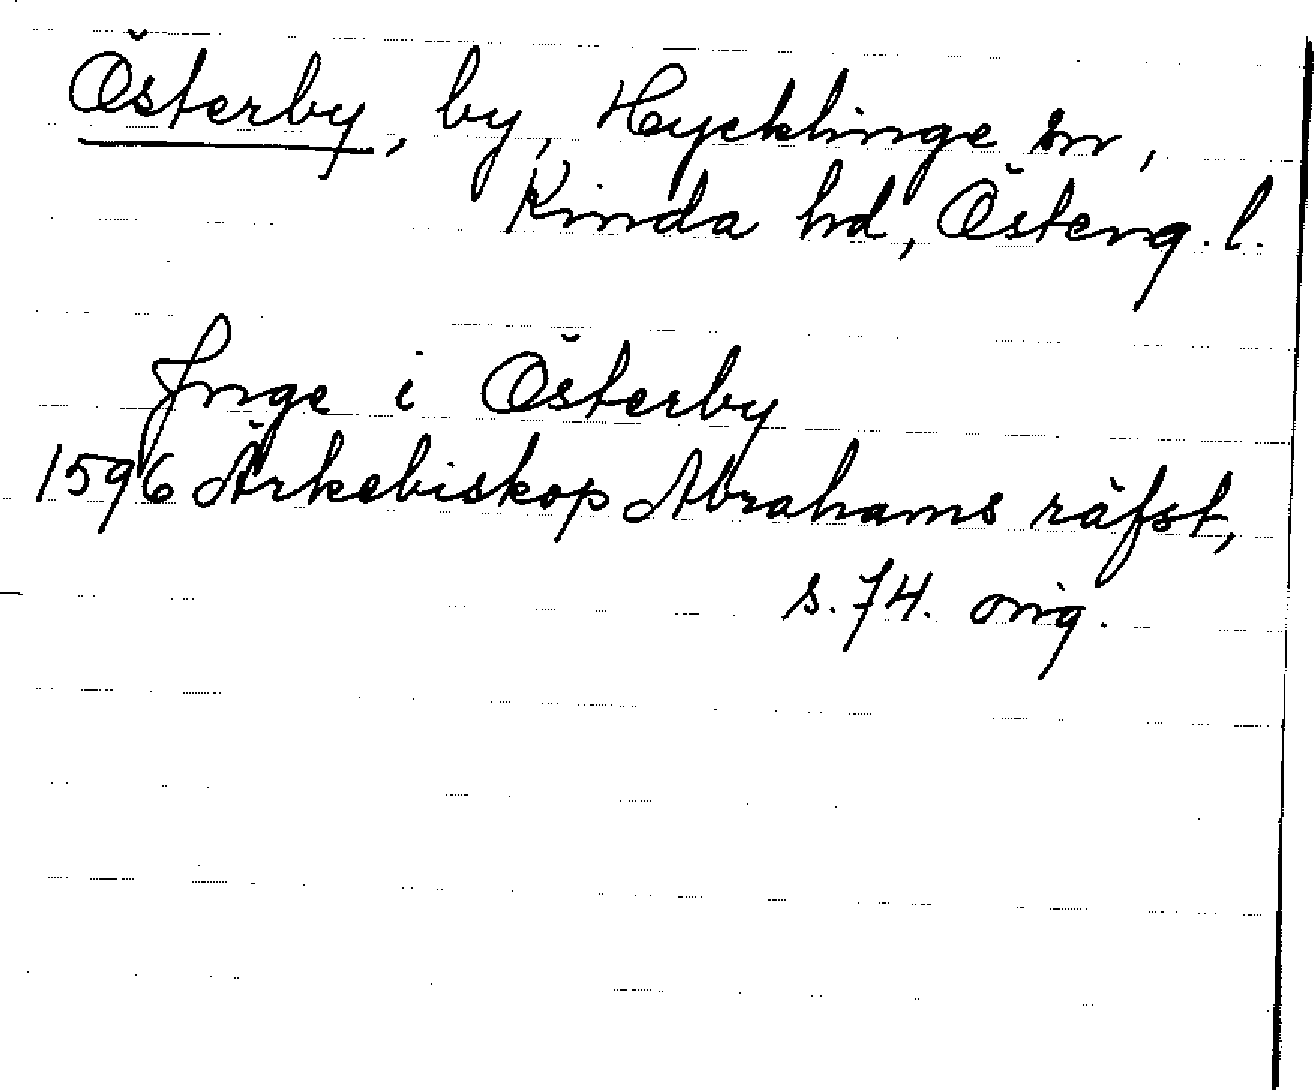 Österby, by, Hycklinge sn,
Kinda hd, Österg. l.
Inge i Österby
1596 Ärkebiskop Abrahams räfst,
s. 74. orig.